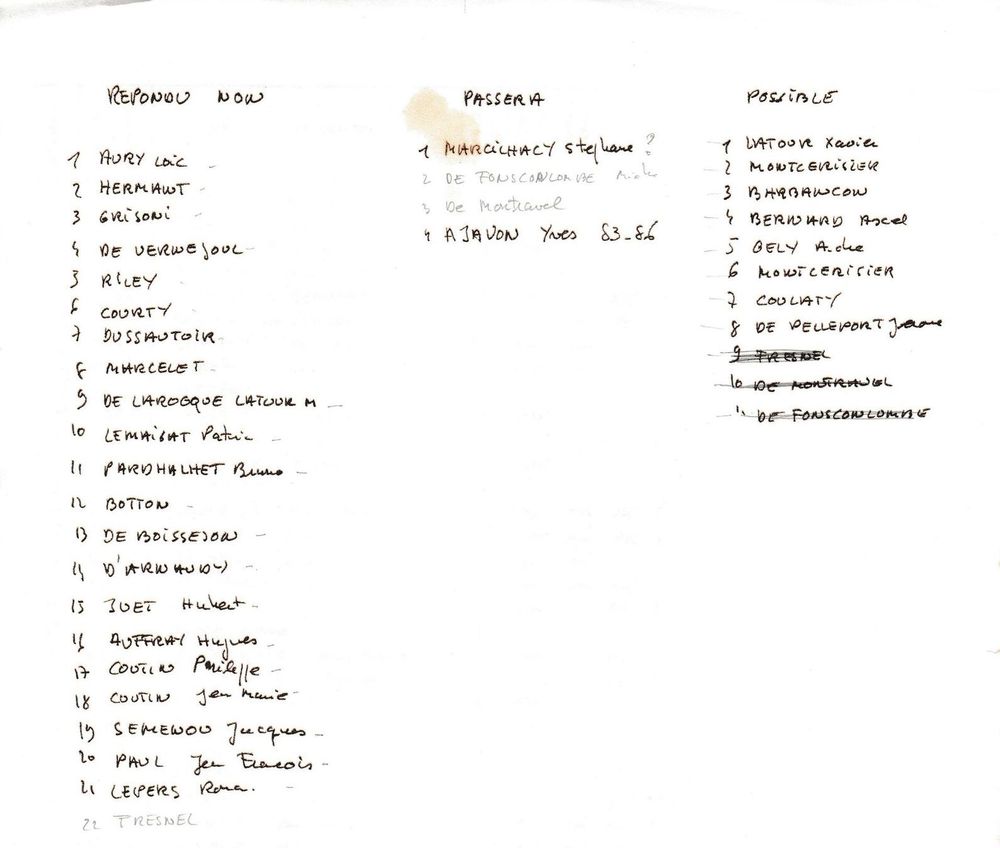 REPONDU NON
1 AURY Loic
2 HERMANT
3 GRISONI
4 DE VERNEJOUL
5 RILEY
6 COURTY
7 DUSSAUTOIR
8 MARCELET
9 DE LAROCQUE LATOUR M
10 LEMAISAT Patric
11 PARDHALHET Bruno
12 BOTTON
13 DE BOISSESON
14 D'ARNAUDY
15 JUET Hubert
16 AUFFRAY Hugues
17 COUTIN Philippe
18 COUTIN Jean Marie
19 SEMENOU Jacques
20 PAUL Jean Francois
21 LEPERS
22 FRESNEL
PASSERA
1 MARCILHACY Stephane ?
2 DE FONSCONLOMBE
3 De Montravel
4 AJAVON Yves 83-86
POSSIBLE
1 LATOUR Xavier
2 MONTCERISIER
3 BARBANCON
4 BERNARD
5 GELY
6 MONTCERISIER
7 COULATY
8 DE PELLEPORT
9 FRESNEL
10 DE MONTRAVEL
11 DE FONSCONLOMBE